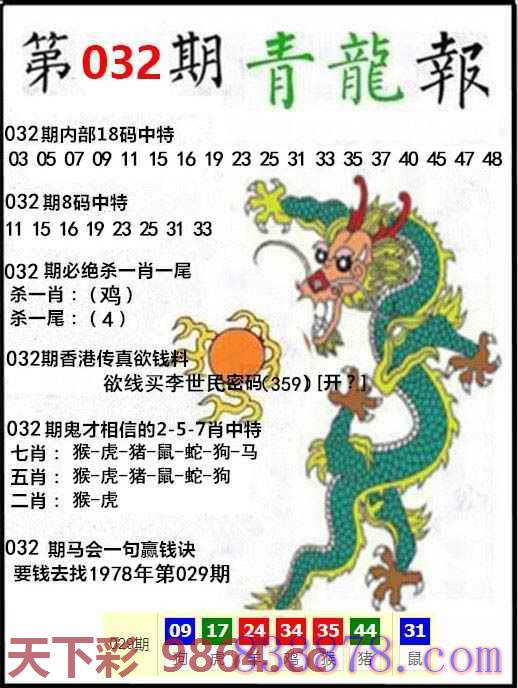 第032期青龍報
032期内部18码中特
03 05 07 09 11 15 16 19 23 25 31 33 35 37 40 45 47 48
032期8码中特
11 15 16 19 23 25 31 33
032期必绝杀一肖一尾
杀一肖：(鸡)
杀一尾：(4)
032期香港传真欲钱料
欲线买李世民密码(359)[开?]
032期鬼才相信的2-5-7肖中特
七肖：猴-虎-猪-鼠-蛇-狗-马
五肖：猴-虎-猪-鼠-蛇-狗
二肖：猴-虎
032期马会一句赢钱诀
要钱去找1978年第029期
029期 09 17 24 34 35 44 31
狗 虎 羊 鸡 猴 猪 鼠
天下彩